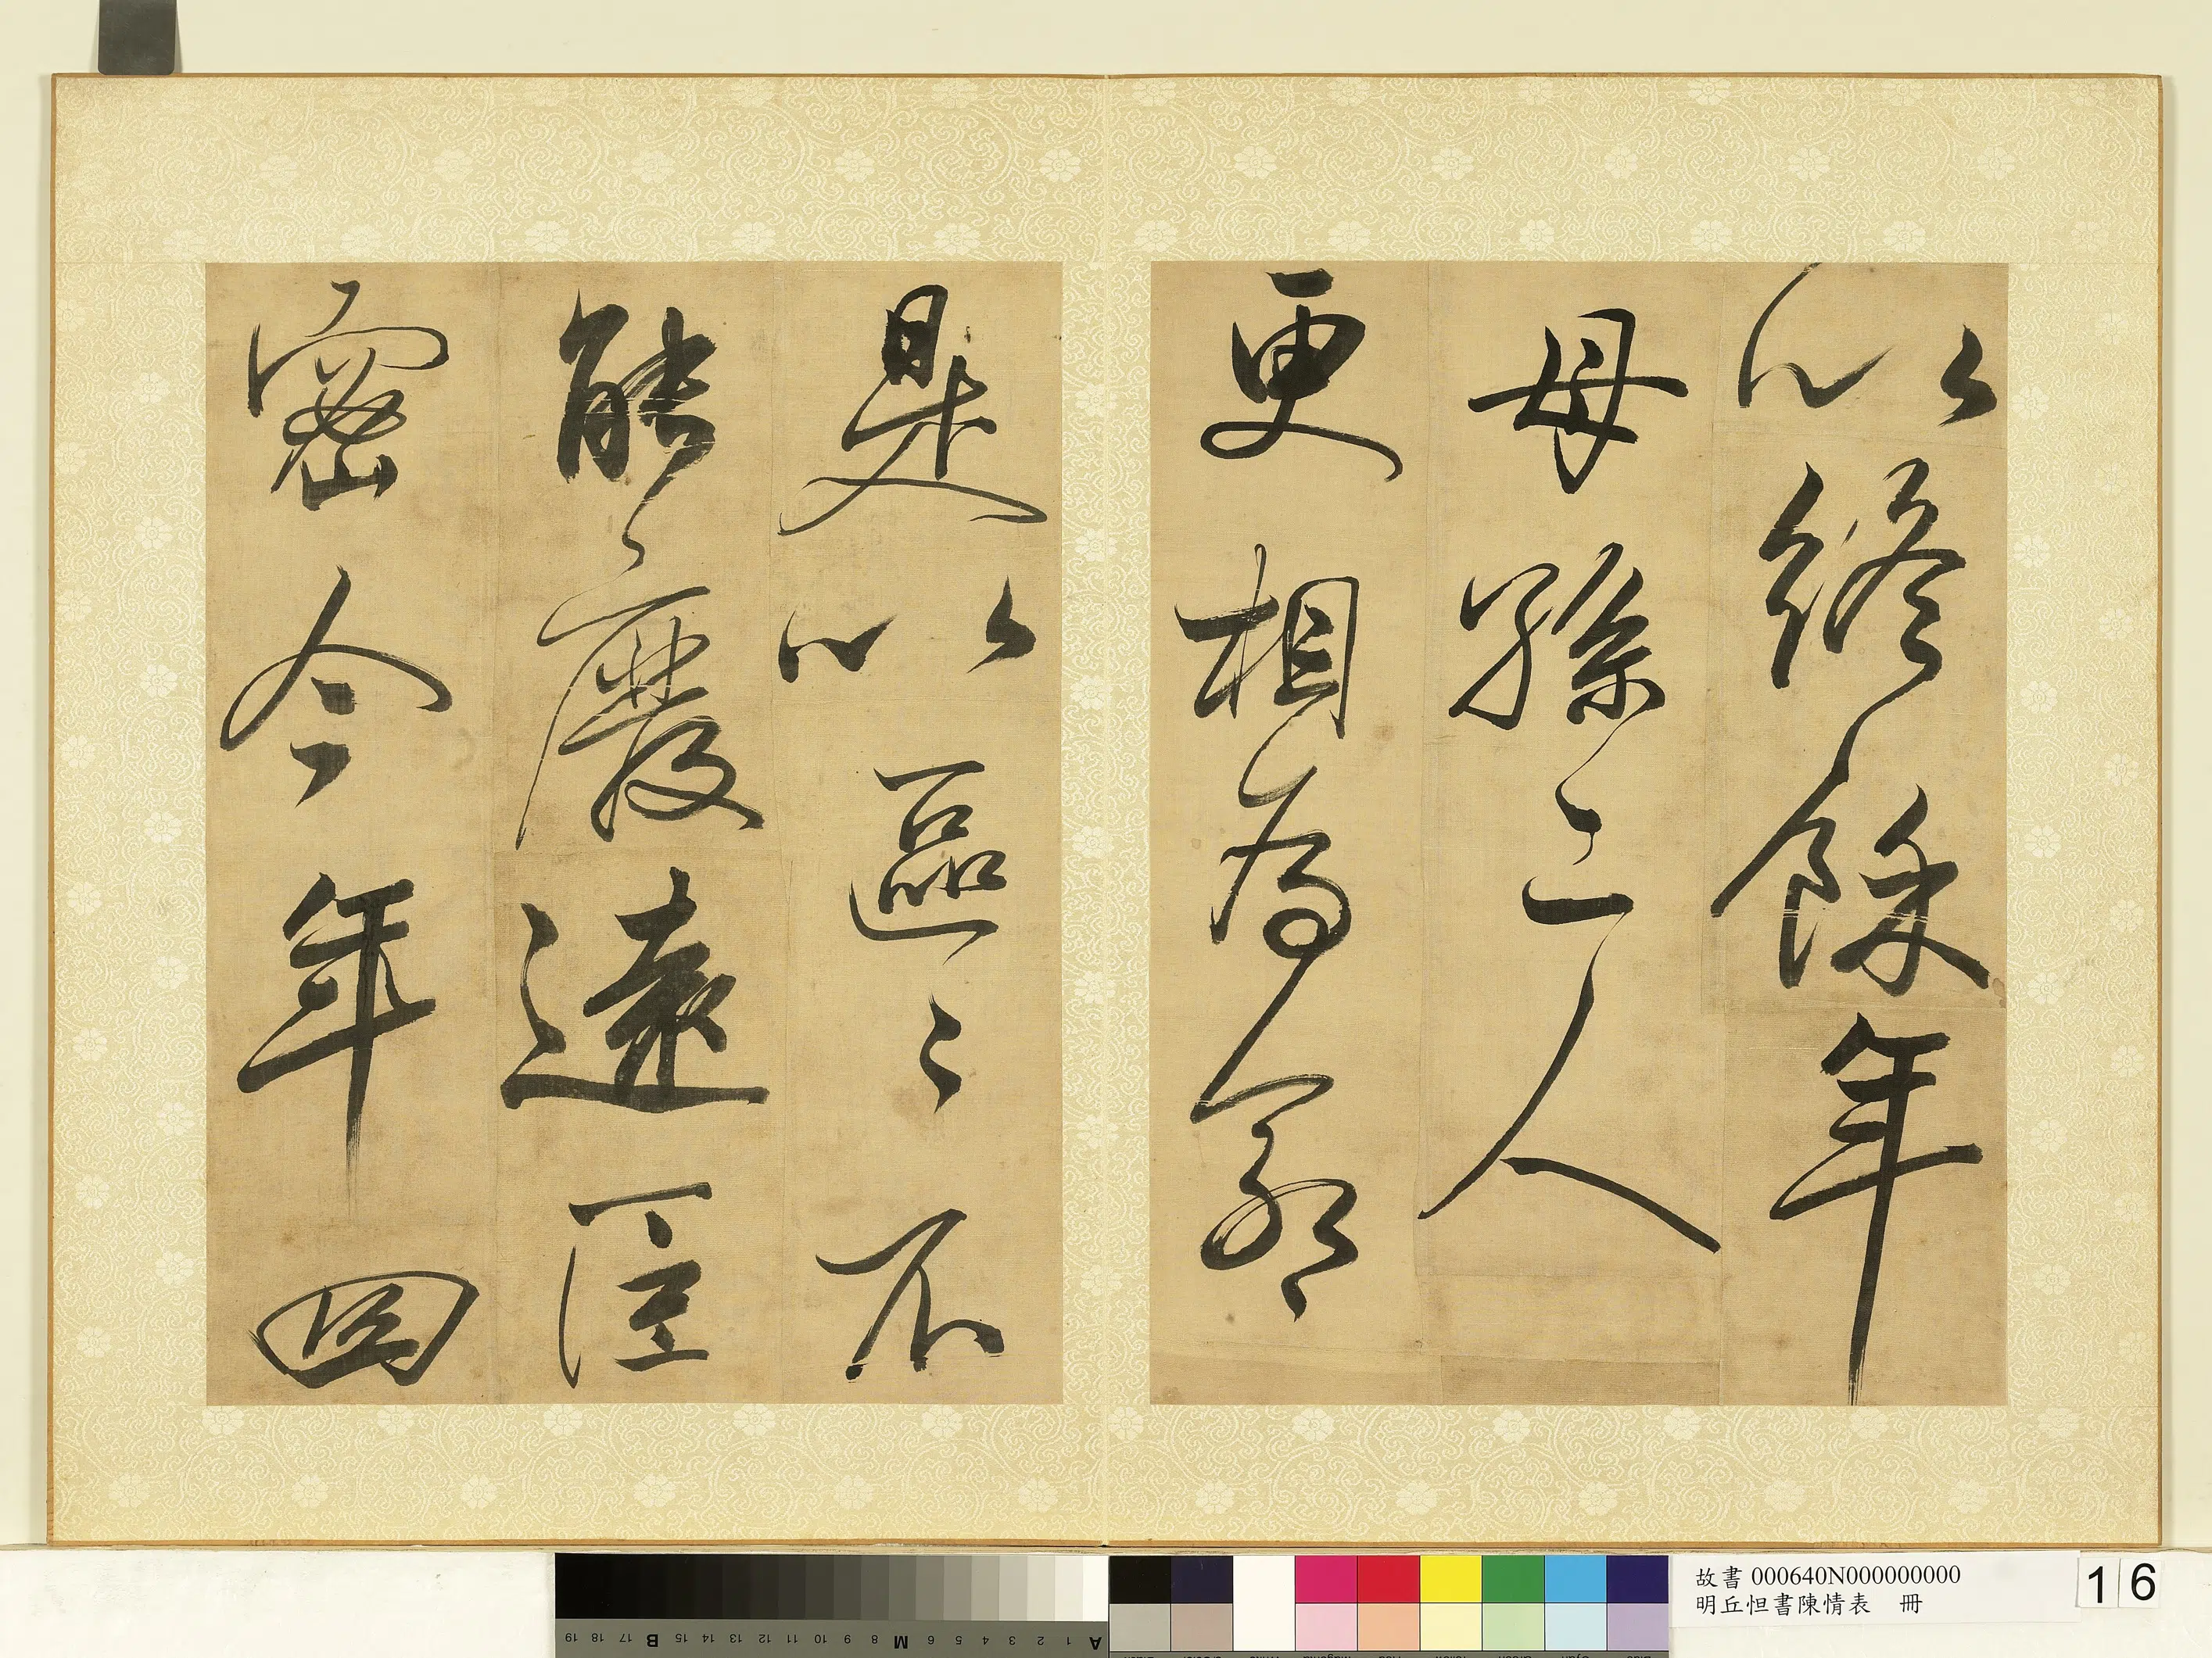 以終餘年
母孫二人
更相為命
是以區〻不
能廢遠臣
密今年四
A 1 2 3 4 5 6 M 8 9 10 11 12 13 14 15 B 17 18 19
故書 000640N000000000
明丘怛書陳情表 冊
16